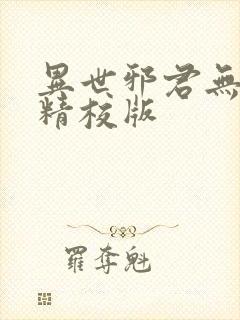 異世邪君無
精校版
羅奪魁